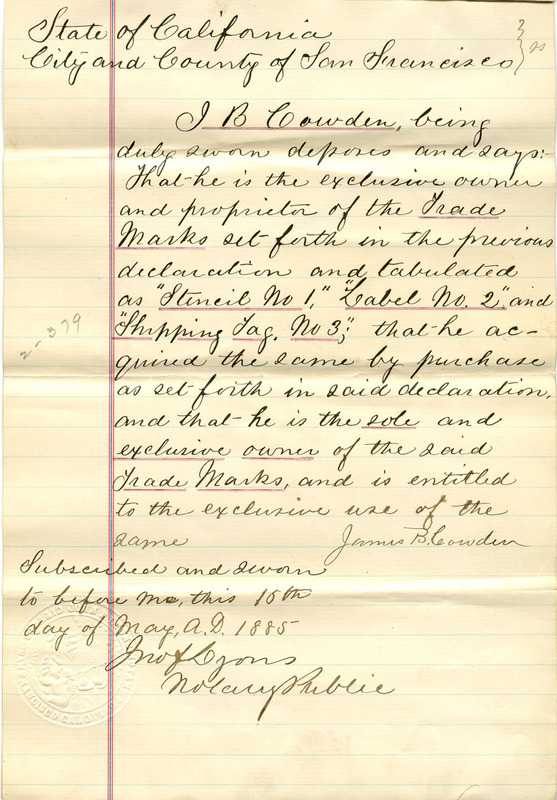 State of California
City and County of San Francisco } ss
J B Cowden, being
duly sworn deposes and says:-
That he is the exclusive owner
and proprietor of the Trade
Marks set forth in the previous
declaration and tabulated
as "Stencil No 1," "Label No. 2", and
"Shipping Tag. No 3"; that he ac-
quired the same by purchase
as set forth in said declaration,
and that he is the sole and
exclusive owner of the said
Trade Marks, and is entitled
to the exclusive use of the
same
James B. Cowden
Subscribed and sworn
to before me, this 15th
day of May, A.D. 1885
Lyons
Notary Public
2-379